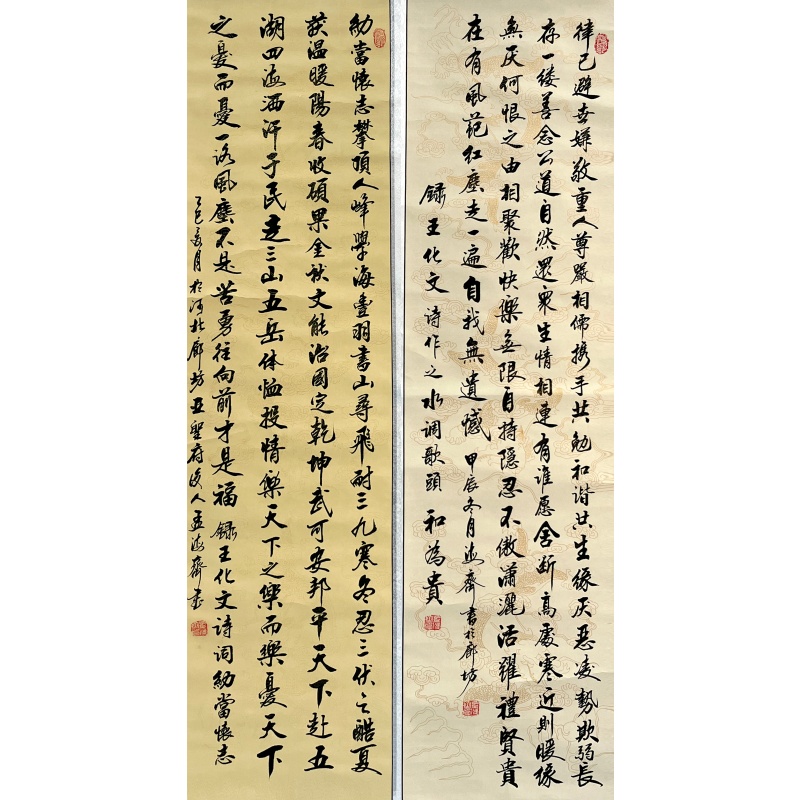 律己避去嫌敬重人尊嚴相儒携手共勉和谐共生緣灰惡凌勢欺弱長
存一缕善念公道自然還衆生情相連有誰愿舍斷高處寒近則暖缘
無灰何恨之由相聚歡快樂無限自持隱忍不傲潇灑活耀禮賢貴
在有風范红塵走一遍自我無遺憾 甲辰冬月海齋書於廊坊
録王化文詩作之水调歌頭 和為貴
幼當懷志攀頂人峰學海疊羽書山尋飛耐三九寒冬忍三伏之酷夏
获温暖陽春收碩果金秋文能治國定乾坤武可安邦平天下赴五
湖四海洒汗于民走三山五岳体恤投情樂天下之樂而樂憂天下
之憂而憂一路風塵不是苦勇往向前才是福 録王化文詩词幼當懷志
乙巳 月於河北廊坊亞聖府後人孟海齋書